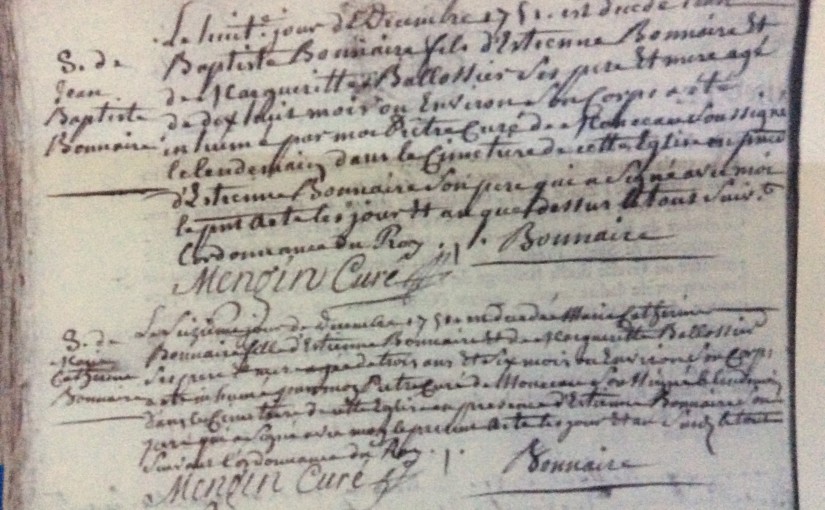 Le huit.e jour de Decembre 1751. est decede Jean
S. de
Jean
Baptiste
Bonnaire
Baptiste Bonnaire fils d'Estienne Bonnaire Et
de Margueritte Ballossier Ses pere Et mere agé
de dix huit mois ou Environ Son Corps a eté
inhumé par moi Pretre Curé de Monceau Soussigné
le lendemain dans le Cimetiere de cette Eglise en
d'Estienne Bonnaire Son pere qui a Signé avec moi
le pnt Acte les jour Et an que dessus le tout Suiv.t
L'ordonnance du Roy. Bonnaire
Mengin Curé
S. de
Marie
Catherine
Bonnaire
Le Sixieme jour de Decembre 1751. Marie Catherine
Bonnaire fille d'Estienne Bonnaire Et de Margueritte Ballossier
Ses pere Et mere agée de trois ans Et Six mois ou Environ Son Corps
a eté inhumé par moy Pretre Curé de Monceau Soussigné le lendemain
dans le Cimetiere de cette Eglise en presence d'Estienne Bonnaire son
pere qui a Signé avec moy le present Acte les jour Et an le tout
Suivant l'ordonnance du Roy. Bonnaire
Mengin Curé